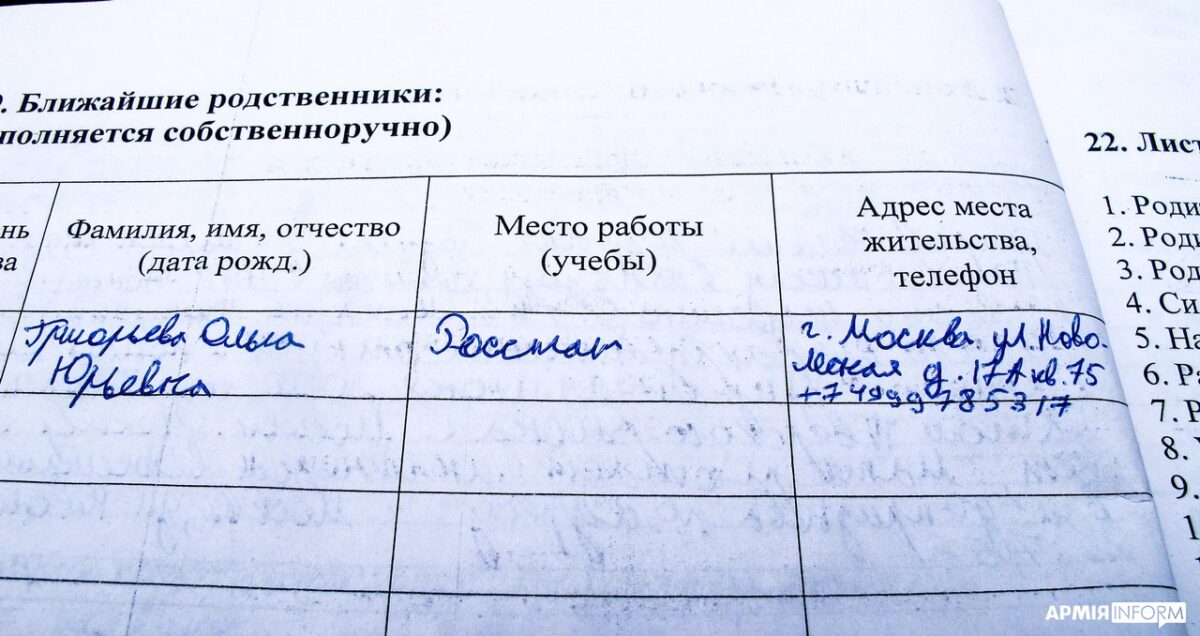 . Ближайшие родственники:
полняется собственноручно)
нь
ва
Фамилия, имя, отчество
(дата рожд.)
Место работы
(учебы)
Адрес места
жительства,
телефон
Григорьева Ольга
Юрьевна
Росстат
г. Москва. ул. Ново.
лесная д. 17А кв. 75
+74999785317
22. Лист
1. Роди
2. Роди
3. Род
4. Си
5. На
6. Ра
7. Р
8.
9.
1
АРМІЯINFORM